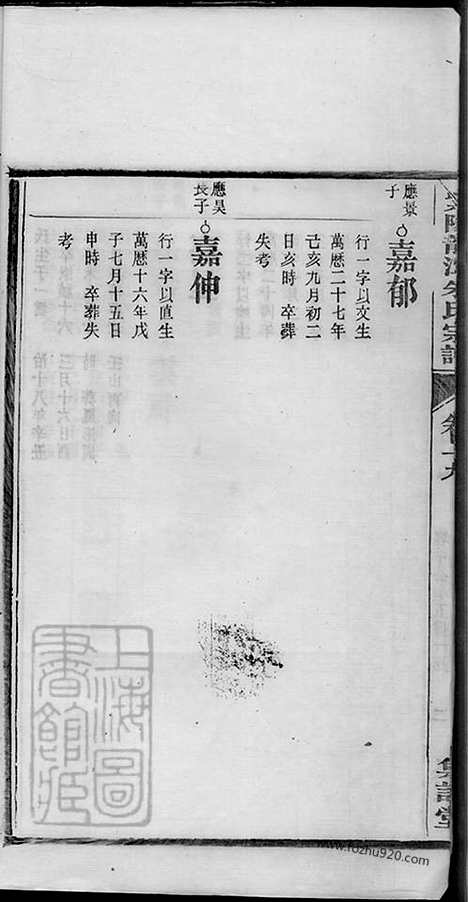 應景
子
嘉郁
行一字以文生
萬曆二十七年
己亥九月初二
日亥時 卒葬
失考
應昊
長子
嘉伸
行一字以直生
萬曆十六年戊
子七月十五日
申時 卒葬失
考
氏宗譜
卷十九
二
集註堂
上海圖
書館藏
www.fozhu920.com